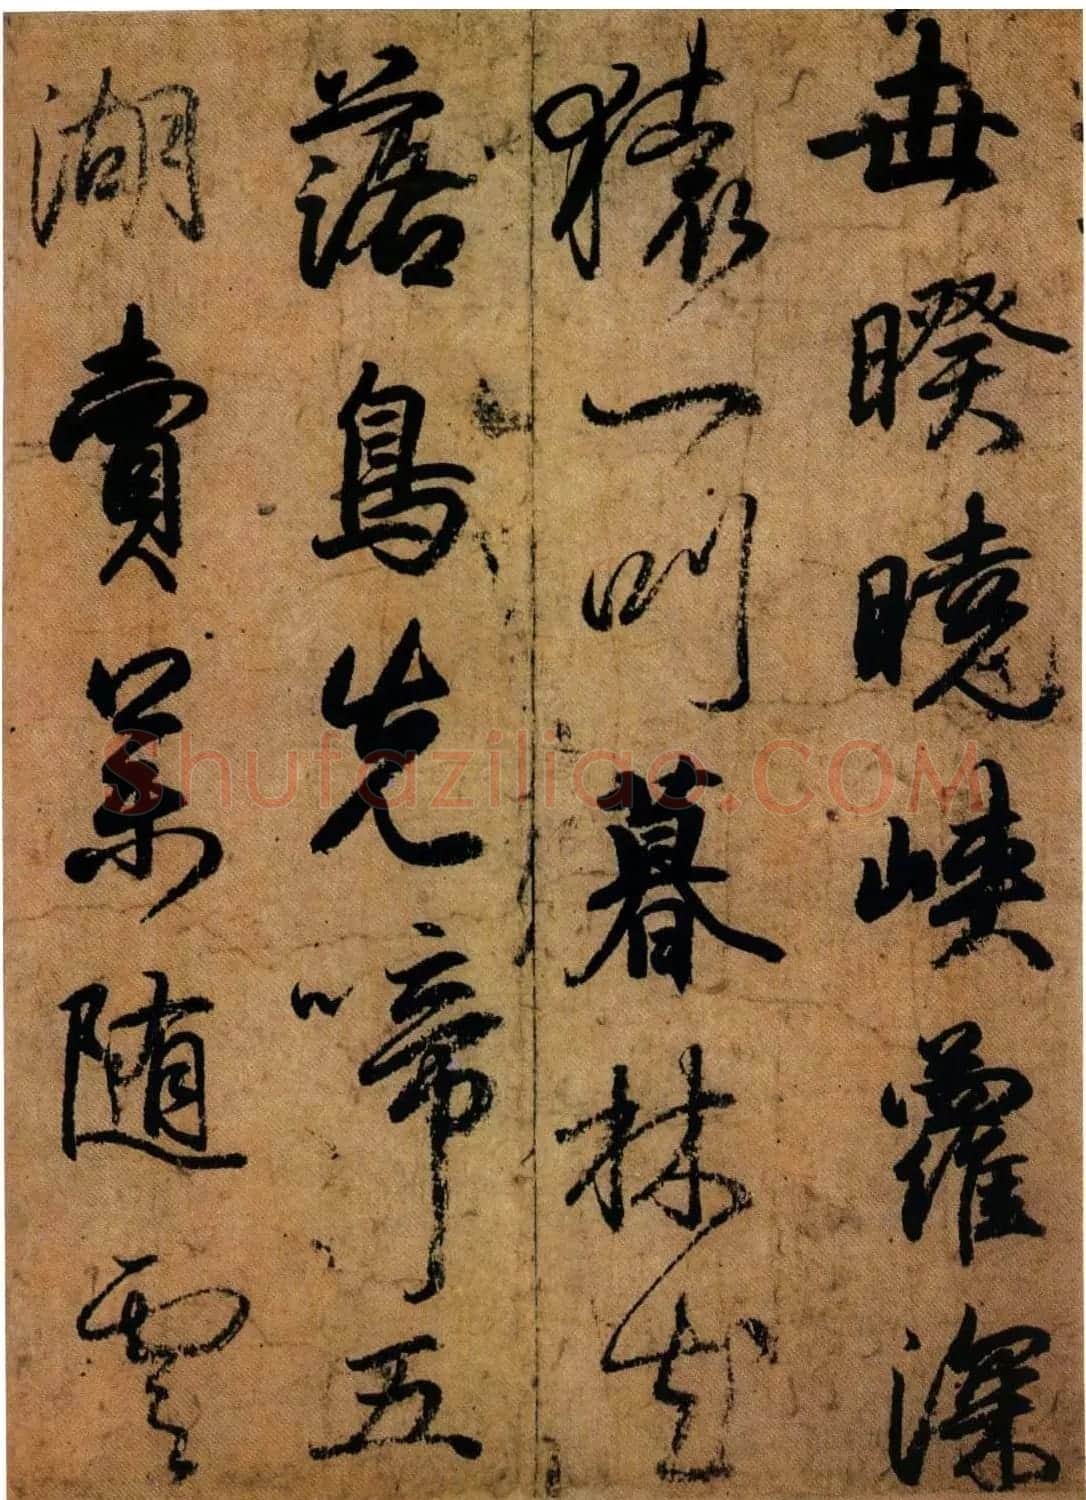 世睽曉峽蘿深
猿一叫暮林花
落鳥先啼五
湖賣藥隨雲
Shufaziliao.COM